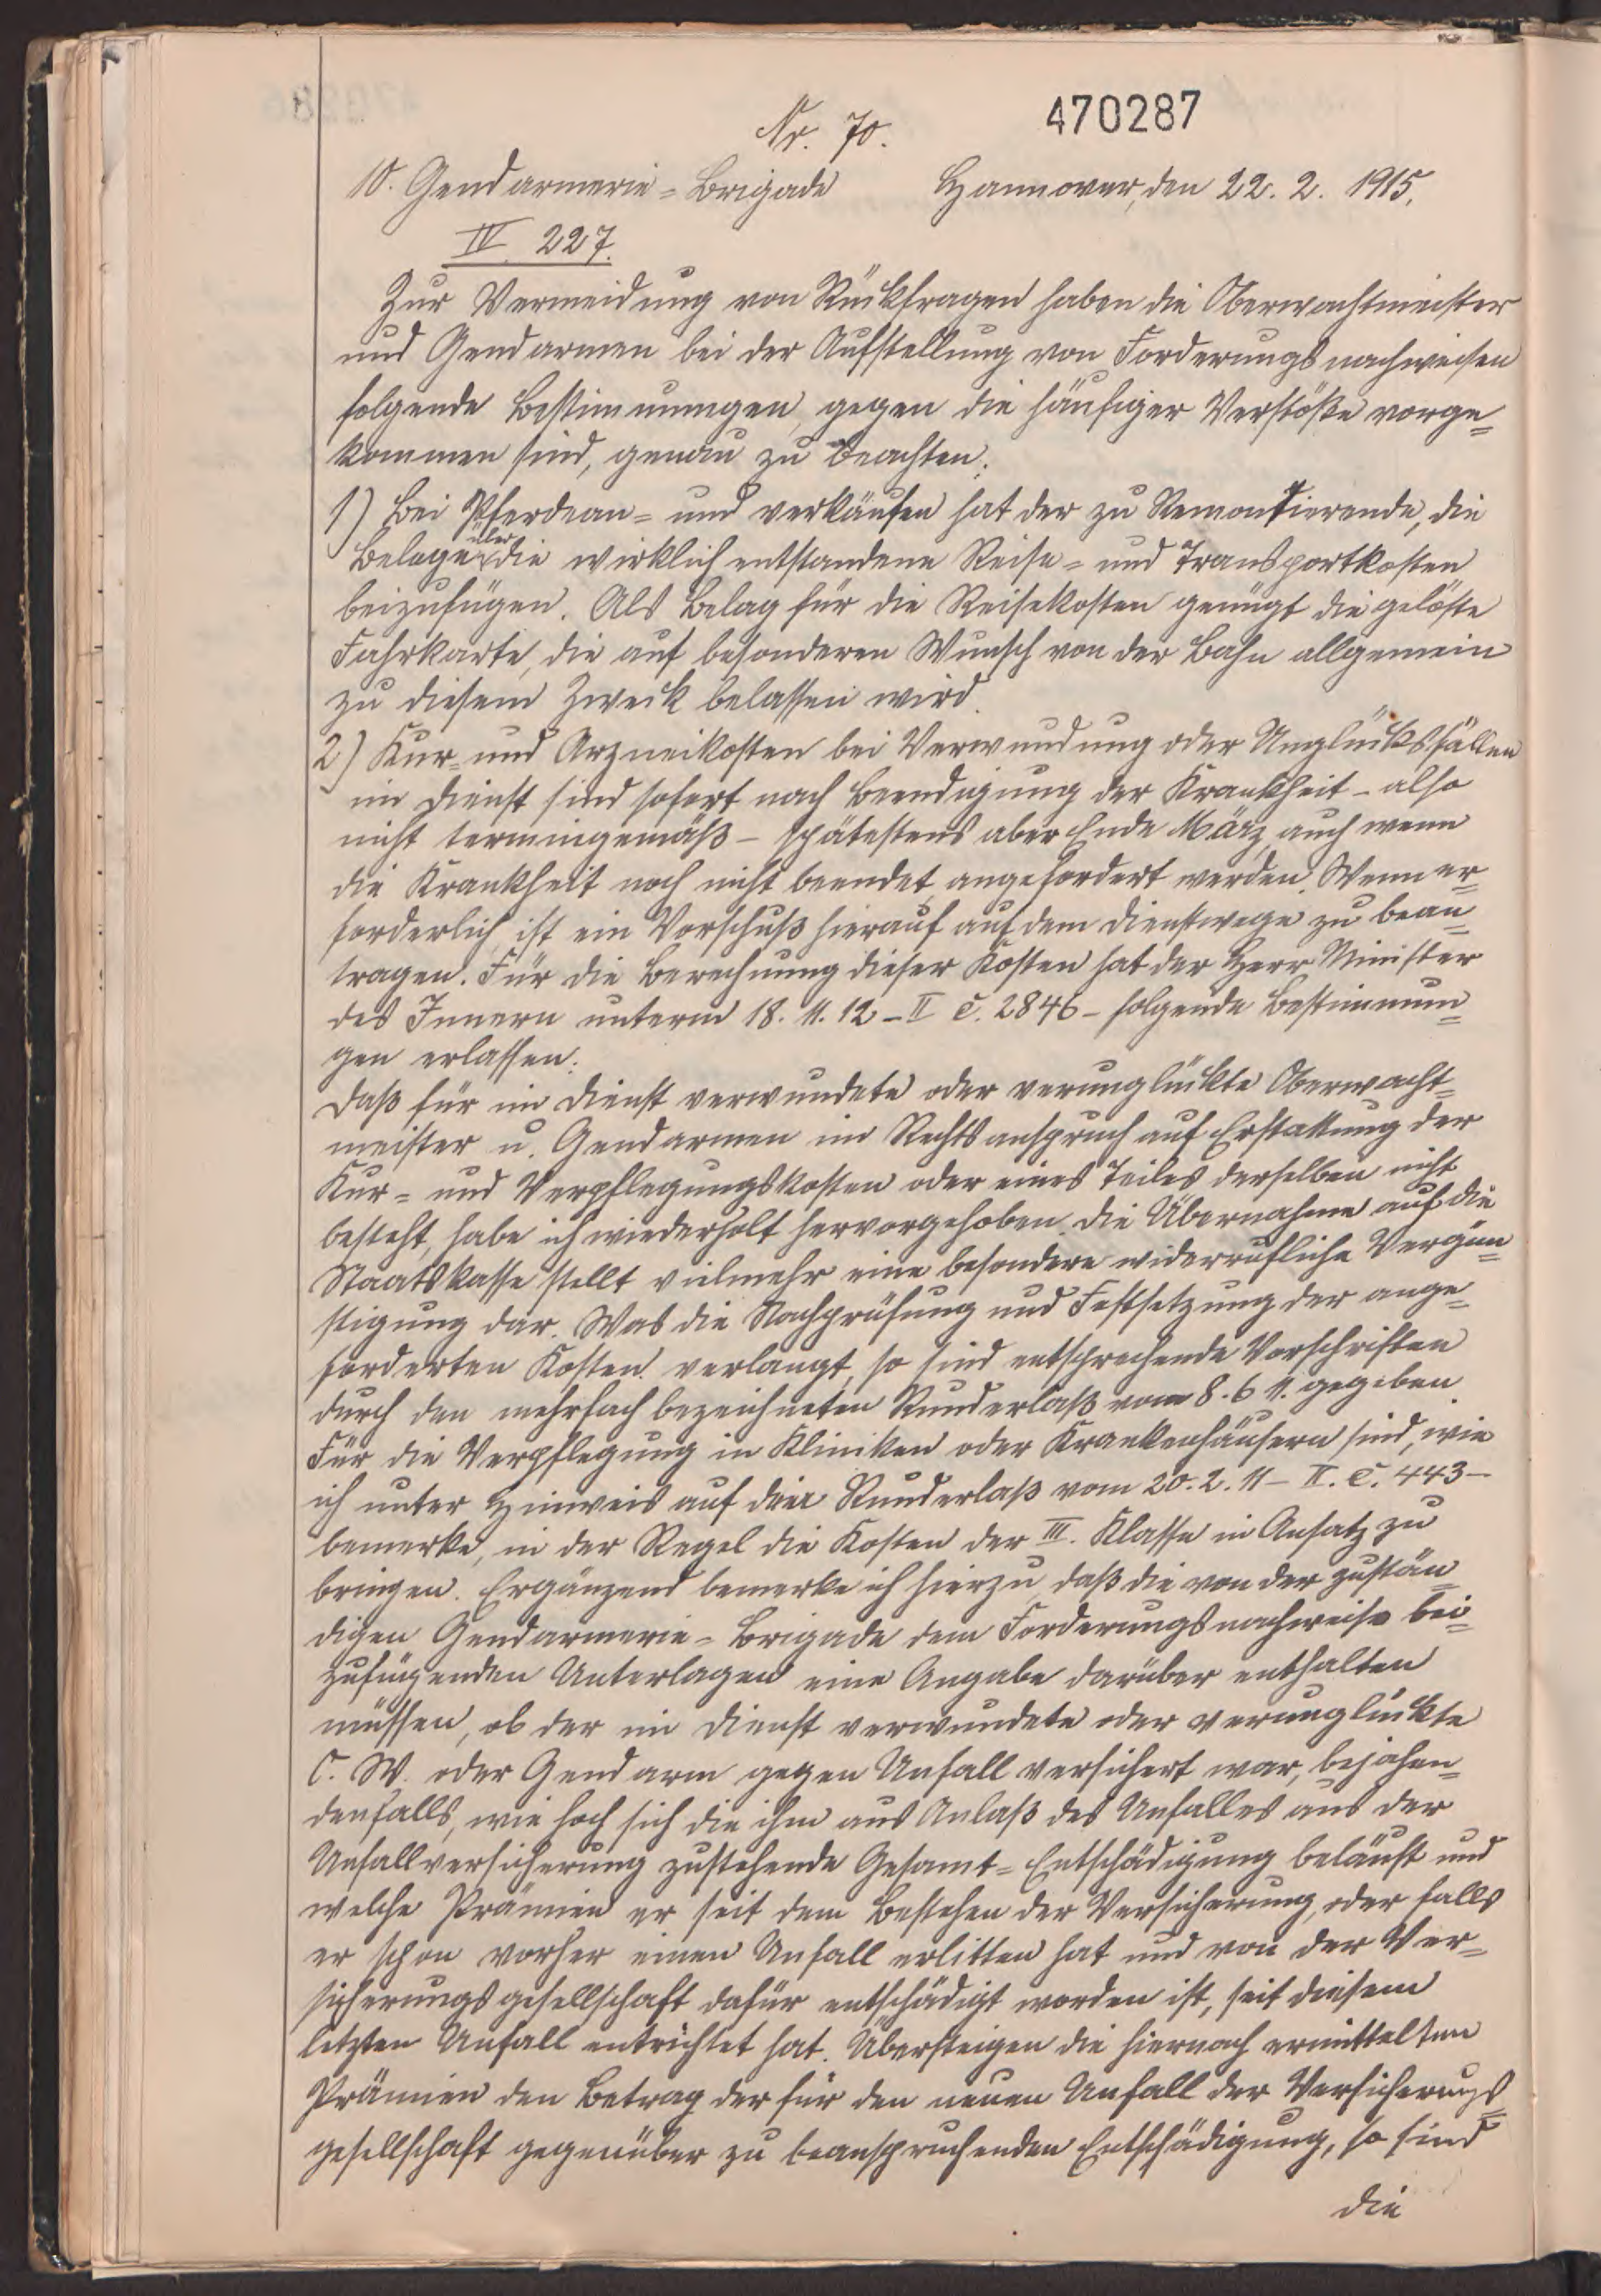 470287
Nr. 70.
10. Gendarmerie=Brigade Hannover, den 22. 2. 1915.
IV. 227.
Zur Vermeidung von Rückfragen haben die Oberwachtmeister
und Gendarmen bei der Aufstellung von Forderungsnachweisen
folgende Bestimmungen, gegen die häufiger Verstöße vorge=
kommen sind, genau zu beachten.
1) Bei Pferdean= und verkäufen hat der zu Remontierende, die
Belage über die wirklich entstandene Reise= und Transportkosten
beizufügen. Als Belag für die Reisekosten genügt die gelöste
Fahrkarte, die auf besonderen Wunsch von der Bahn allgemein
zu diesem Zweck belassen wird.
2) Kur= und Arzneikosten bei Verwundung oder Unglücksfällen
im Dienst sind sofort nach Beendigung der Krankheit – also
nicht termingemäß – spätestens aber Ende März, auch wenn
die Krankheit noch nicht beendet, angefordert werden. Wenn er=
forderlich, ist ein Vorschuß hierauf auf dem Dienstwege zu bean=
tragen. Für die Berechnung dieser Kosten hat der Herr Minister
des Innern unterm 18. 11. 12 – II C. 2846 – folgende Bestimmun=
gen erlassen:
Daß für im Dienst verwundete oder verunglückte Oberwacht=
meister u. Gendarmen im Rechtsanspruch auf Erstattung der
Kur= und Verpflegungskosten oder eines Teiles derselben nicht
besteht, habe ich wiederholt hervorgehoben. Die Übernahme auf die
Staatskasse stellt vielmehr eine besondere widerrufliche Vergün=
stigung dar. Was die Nachprüfung und Festsetzung der ange=
forderten Kosten verlangt, so sind entsprechende Vorschriften
durch den mehrfach bezeichneten Runderlaß vom 8. 6 11. gegeben.
Für die Verpflegung in Kliniken oder Krankenhäusern sind, wie
ich unter Hinweis auf den Runderlaß vom 20. 2. 11 – II. C. 443 –
bemerke, in der Regel die Kosten der III. Klasse in Ansatz zu
bringen. Ergänzend bemerke ich hierzu, daß die von der zustän=
digen Gendarmerie=Brigade dem Forderungsnachweise bei=
zufügenden Unterlagen eine Angabe darüber enthalten
müssen, ob der im Dienst verwundete oder verunglückte
O. W. oder Gendarm gegen Unfall versichert war, bejahen=
denfalls, wie hoch sich die ihm aus Anlaß des Unfalles aus der
Unfallversicherung zustehende Gesamt=Entschädigung beläuft und
welche Prämien er seit dem Bestehen der Versicherung, oder falls
er schon vorher einen Unfall erlitten hat und von der Ver=
sicherungsgesellschaft dafür entschädigt worden ist, seit diesem
letzten Unfall entrichtet hat. Übersteigen die hiernach ermittelten
Prämien den Betrag der für den neuen Unfall der Versicherungs=
gesellschaft gegenüber zu beanspruchenden Entschädigung, so sind
die